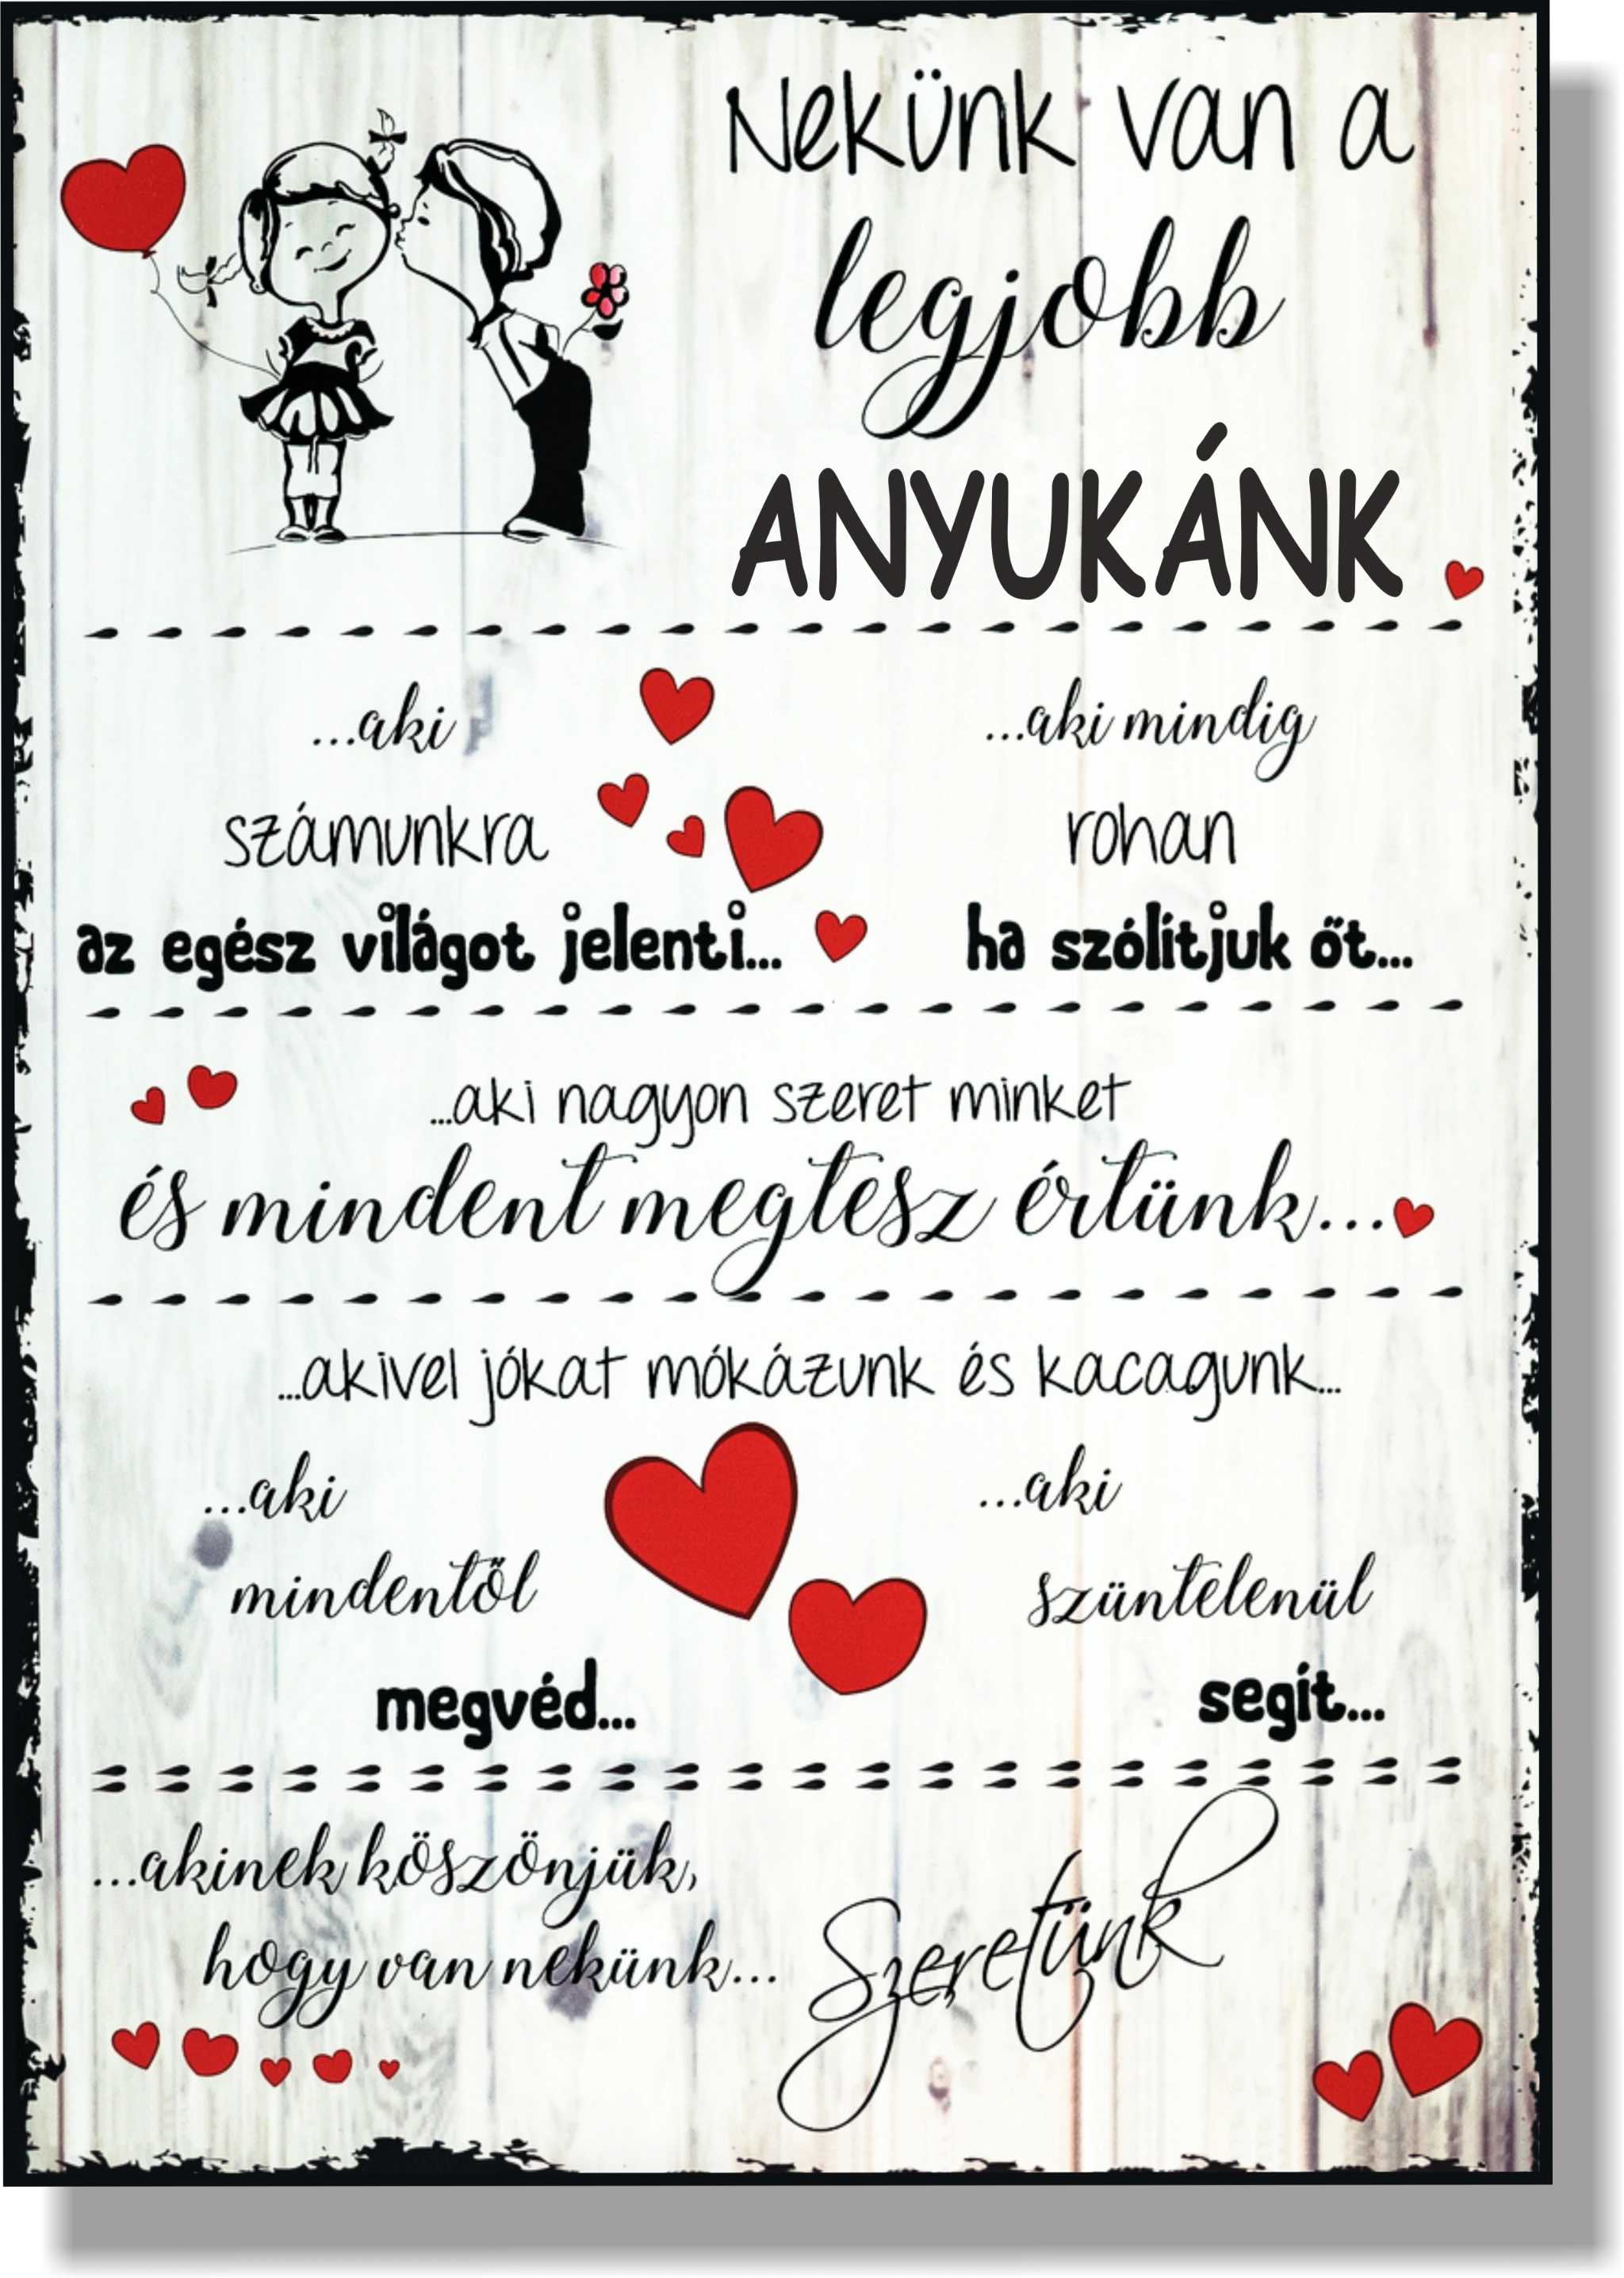 Nekünk van a
legjobb
ANYUKÁNK
...aki
számunkra
az egész világot jelenti...
...aki mindig
rohan
ha szólítjuk őt...
...aki nagyon szeret minket
és mindent megtesz értünk...
...akivel jókat mókázunk és kacagunk...
...aki
mindentől
megvéd...
...aki
szüntelenül
segít...
...akinek köszönjük,
hogy van nekünk...
Szeretünk